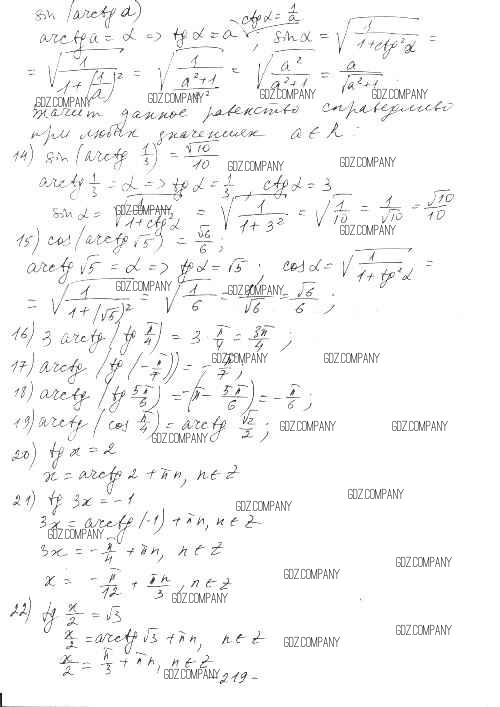 sin (arctg a)
arctg a = α => tg α = a, ctg α = 1/a, sin α = √(1/(1+ctg²α)) =
= √(1/(1+(1/a)²)) = √(1/((a²+1)/a²)) = √(a²/(a²+1)) = a/√(a²+1)
GDZ.COMPANY GDZ.COMPANY GDZ.COMPANY GDZ.COMPANY
значит данное равенство справедливо
при любых значениях a ∈ R.
14) sin(arctg 1/3) = √10/10 GDZ.COMPANY GDZ.COMPANY
arctg 1/3 = α => tg α = 1/3 ctg α = 3
sin α = √(1/(1+ctg α)) = √(1/(1+3²)) = √(1/10) = 1/√10 = √10/10
GDZ.COMPANY GDZ.COMPANY
15) cos(arctg √5) = √6/6;
arctg √5 = α => tg α = √5; cos α = √(1/(1+tg²α)) =
GDZ.COMPANY GDZ.COMPANY
= √(1/(1+(√5)²)) = √(1/6) = 1/√6 = √6/6;
16) 3 arctg(tg π/4) = 3·π/4 = 3π/4;
GDZ.COMPANY GDZ.COMPANY
17) arctg(tg(-π/7)) = -π/7;
18) arctg(tg 5π/6) = -(π - 5π/6) = -π/6;
19) arctg(cos π/4) = arctg √2/2; GDZ.COMPANY GDZ.COMPANY
GDZ.COMPANY
20) tg x = 2
x = arctg 2 + πn, n ∈ Z
21) tg 3x = -1 GDZ.COMPANY
GDZ.COMPANY
3x = arctg(-1) + πn, n ∈ Z
GDZ.COMPANY
3x = -π/4 + πn, n ∈ Z
GDZ.COMPANY GDZ.COMPANY
x = -π/12 + πn/3, n ∈ Z
GDZ.COMPANY
22) tg x/2 = √3
x/2 = arctg √3 + πn, n ∈ Z GDZ.COMPANY GDZ.COMPANY
x/2 = π/3 + πn, n ∈ Z
GDZ.COMPANY
-219-